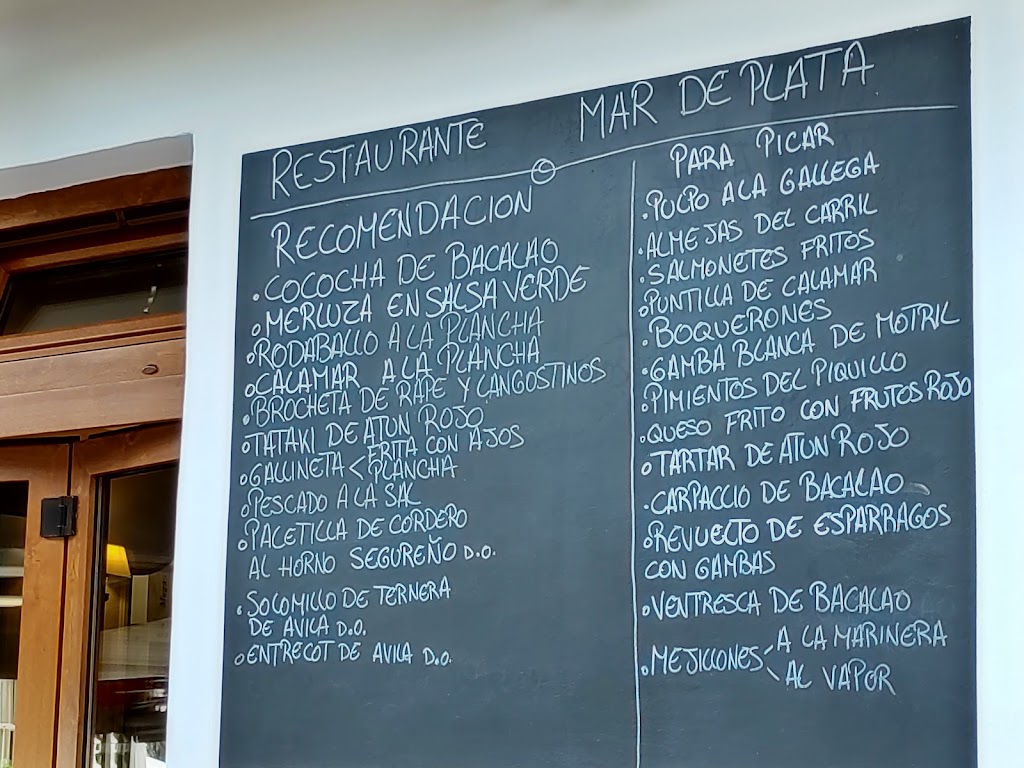 RESTAURANTE MAR DE PLATA
RECOMENDACION
.COCOCHA DE BACALAO
.MERLUZA EN SALSA VERDE
.RODABALLO A LA PLANCHA
.CALAMAR A LA PLANCHA
.BROCHETA DE RAPE Y LANGOSTINOS
.TATAKI DE ATUN ROJO
.GALLINETA < FRITA CON AJOS
PLANCHA
.PESCADO A LA SAL
.PALETILLA DE CORDERO
AL HORNO SEGUREÑO D.O.
.SOLOMILLO DE TERNERA
DE AVILA D.O.
.ENTRECOT DE AVILA D.O.
PARA PICAR
.PULPO A LA GALLEGA
.ALMEJAS DEL CARRIL
.SALMONETES FRITOS
.PUNTILLA DE CALAMAR
.BOQUERONES
.GAMBA BLANCA DE MOTRIL
.PIMIENTOS DEL PIQUILLO
.QUESO FRITO CON FRUTOS ROJO
.TARTAR DE ATUN ROJO
.CARPACCIO DE BACALAO
.REVUELTO DE ESPARRAGOS
CON GAMBAS
.VENTRESCA DE BACALAO
.MEJILLONES < A LA MARINERA
AL VAPOR